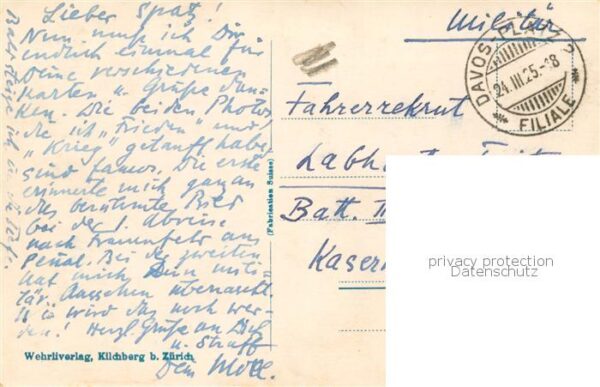 Lieber Spatz!
Nun muß ich Dir
endlich einmal für
Deine verschiedenen
Karten u. Grüße dan-
ken. Die beiden Photos
die ich „Frieden" und
„Krieg" getauft habe,
sind famos. Die erste
erinnerte mich ganz an
das berühmte Bild
bei der 1. Abreise
nach Frauenfeld aus
Bei der zweiten
hat mich Dein mili-
tär. Aussehen überrascht.
Wie wird das noch wer-
den! Herzl. Grüße an Dich
u. Straff
Dein
Wehrliverlag, Kilchberg b. Zürich
(Fabrication Suisse)
Militär
DAVOS-PLATZ 2
24.III.25.-18
FILIALE
Fahrerrekrut
Labh
Batt.
Kasern
privacy protection
Datenschutz